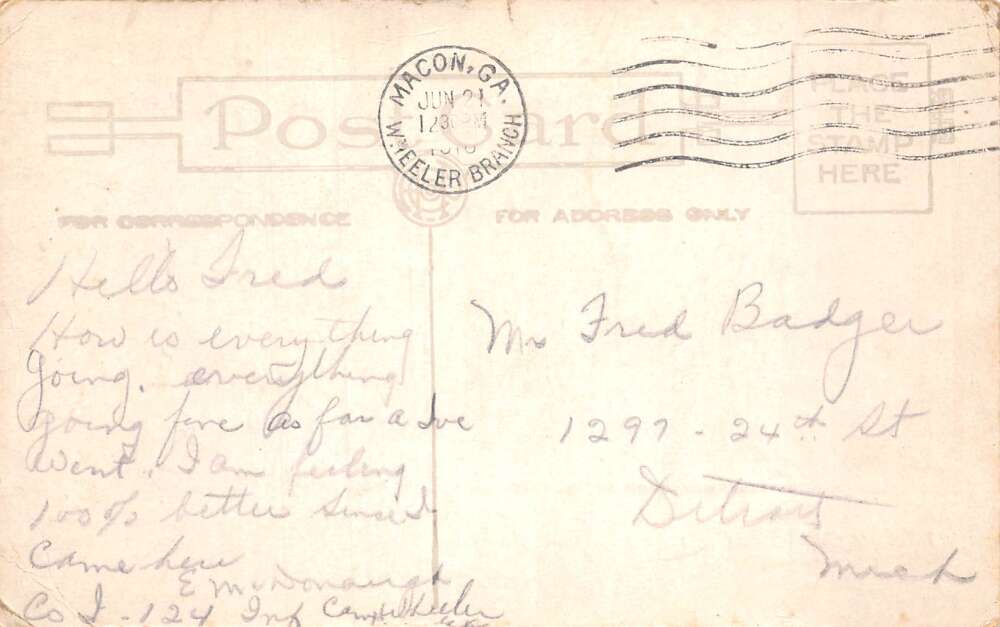 MACON, GA.
JUN 21
12 30 PM
WHEELER BRANCH
Post Card
PLACE
THE
STAMP
HERE
FOR CORRESPONDENCE
FOR ADDRESS ONLY
Hello Fred
How is everything
going. everything
going fine as far as I've
went. I am feeling
100% better since I
came here
E McDonaugh
Co I - 124 Inf Camp Wheeler
Mr Fred Badger
1297 - 24th St
Detroit
Mich